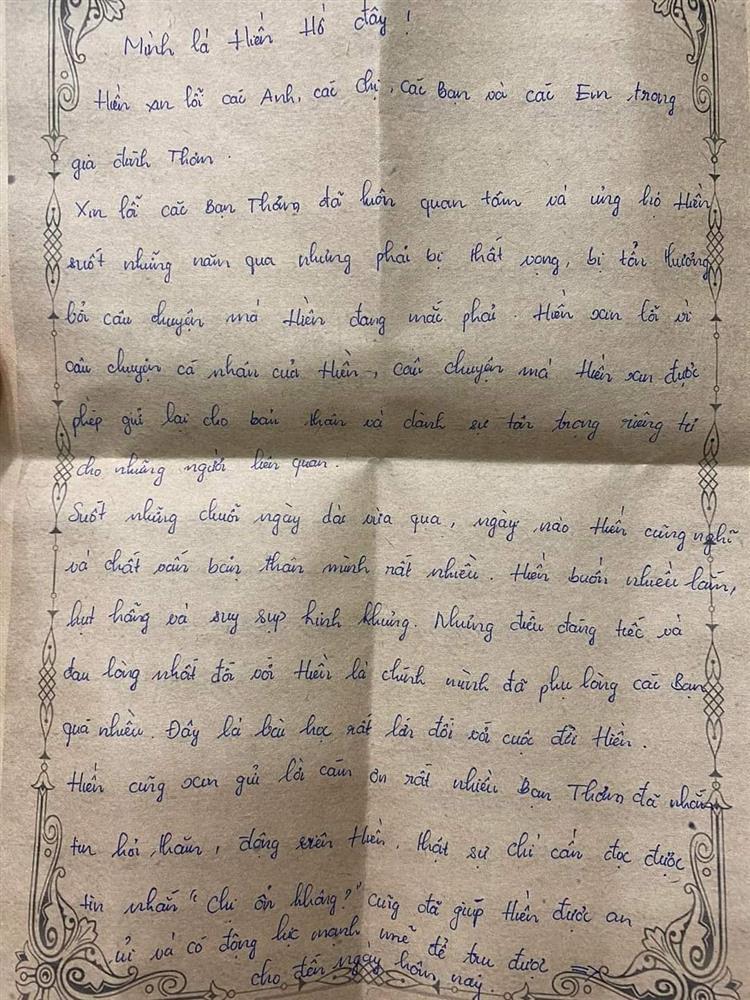 Mình là Hiền Hồ đây !
Hiền xin lỗi các Anh, các chị, các Bạn và các Em trong
gia đình Thơm .
Xin lỗi các Bạn Thơm đã luôn quan tâm và ủng hộ Hiền
suốt những năm qua nhưng phải bị thất vọng, bị tổn thương
bởi câu chuyện mà Hiền đang mắc phải . Hiền xin lỗi vì
câu chuyện cá nhân của Hiền, câu chuyện mà Hiền xin được
phép giữ lại cho bản thân và dành sự tôn trọng riêng tư
cho những người liên quan.
Suốt những chuỗi ngày dài vừa qua, ngày nào Hiền cũng nghĩ
và chất vấn bản thân mình rất nhiều. Hiền buồn nhiều lắm,
hụt hẫng và suy sụp kinh khủng. Nhưng điều đáng tiếc và
đau lòng nhất đối với Hiền là chính mình đã phụ lòng các Bạn
quá nhiều. Đây là bài học rất lớn đối với cuộc đời Hiền.
Hiền cũng xin gửi lời cảm ơn rất nhiều Bạn Thơm đã nhắn
tin hỏi thăm, động viên Hiền, thật sự chỉ cần đọc được
tin nhắn "chị ổn không?" cũng đã giúp Hiền được an
ủi và có động lực mạnh mẽ để trụ được =>
cho đến ngày hôm nay.